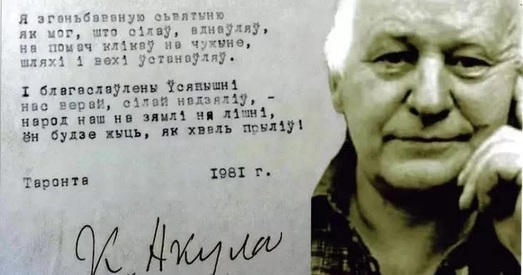 Я зганьбаваную сьвятыню
як мог, што сілаў, аднаўляў,
на помач клікаў на чужыне,
шляхі і вехі ўстанаўляў.
І благаслаўлены Ўсявышні
нас верай, сілай надзяліў, -
народ наш на зямлі ня лішні,
ён будзе жыць, як хваль прыліў!
Таронта 1981 г.
К. Акула